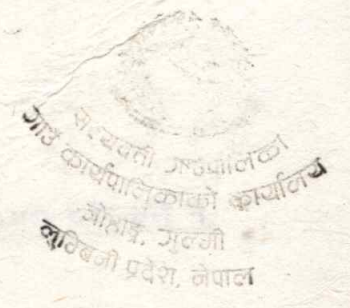 सत्यवती गाउँपालिका
गाउँ कार्यपालिकाको कार्यालय
गुल्मी
लुम्बिनी प्रदेश, नेपाल